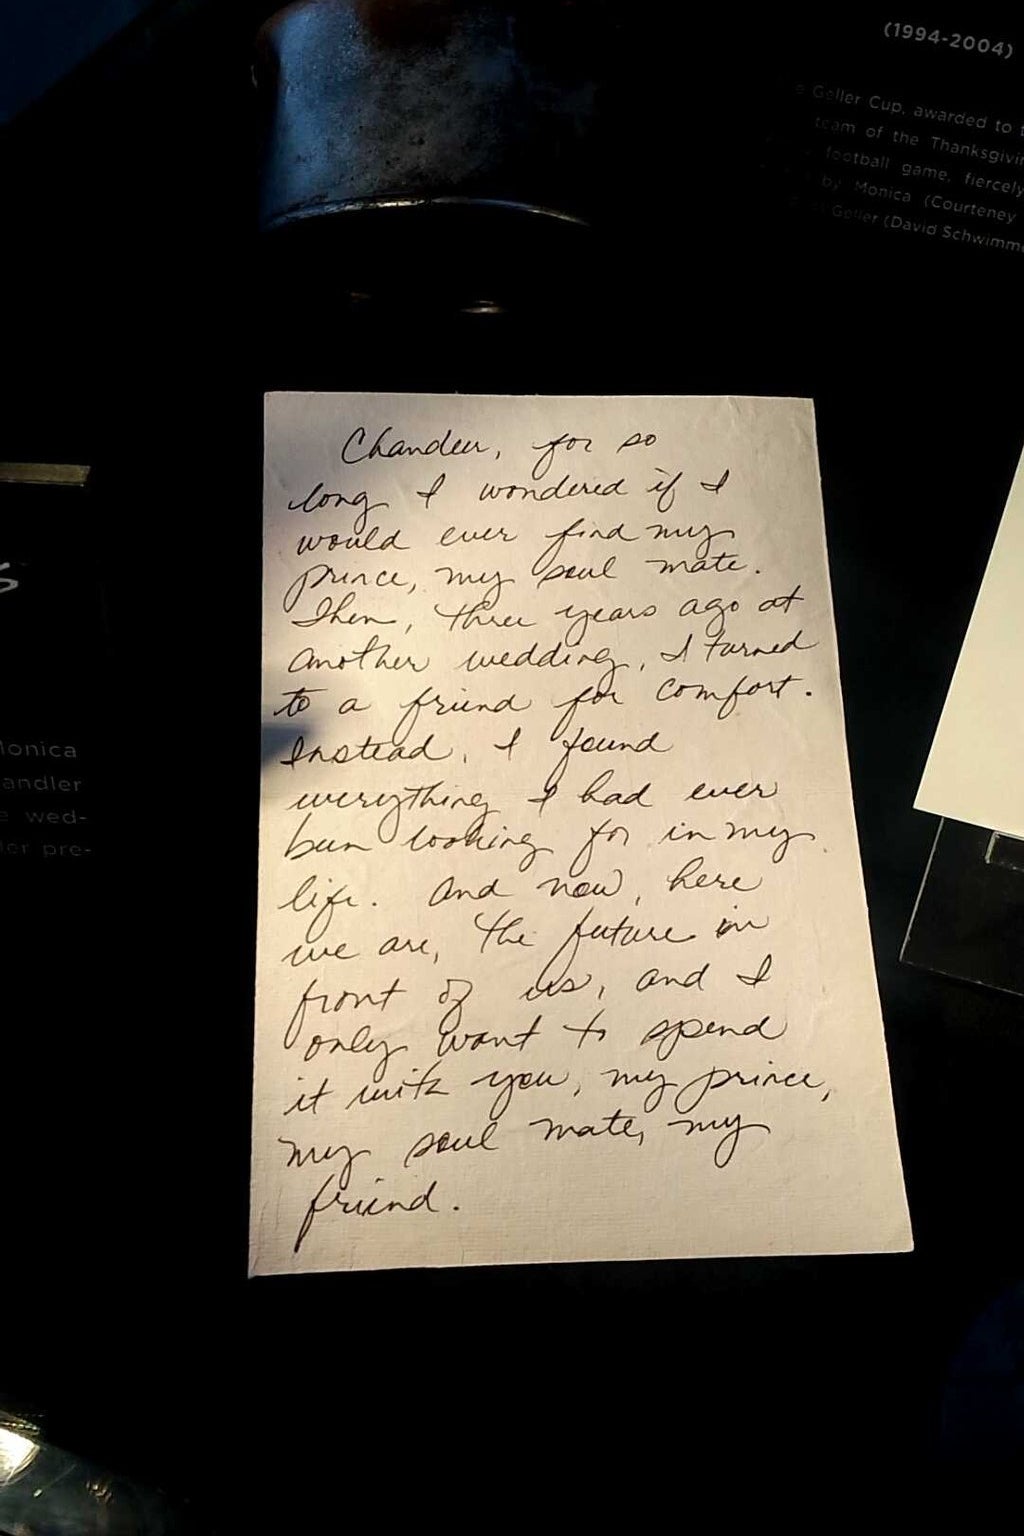 (1994-2004)
Geller Cup, awarded to
team of the Thanksgivin
football game, fiercely
by Monica (Courteney
Geller (David Schwimme
Chandler, for so
long I wondered if I
would ever find my
prince, my soul mate.
Then, three years ago at
another wedding, I turned
to a friend for comfort.
Instead, I found
everything I had ever
been looking for in my
life. And now, here
we are, the future in
front of us, and I
only want to spend
it with you, my prince,
my soul mate, my
friend.
s
onica
andler
e wed-
ler pre-